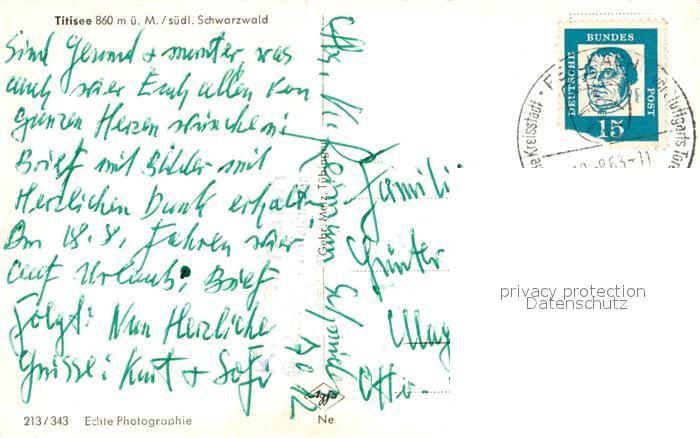 Titisee 860 m ü. M. / südl. Schwarzwald
Sind Gesund + munter was
auch wir Euch allen von
ganzen Herzen wünschen
Brief mit Bilder mit
Herzlichen Dank erhalt
Am 18.8. Fahren wir
auf Urlaub, Brief
Folgt! Nun Herzliche
Grüsse: Kurt + Sofi
213/343 Echte Photographie
Gebr. Metz Tübingen
Agfa
Ne
Famili
Günter
Otto-
DEUTSCHE
BUNDES
POST
15
Kreisstadt
vor Stuttgarts Tore
8.63-11
privacy protection
Datenschutz